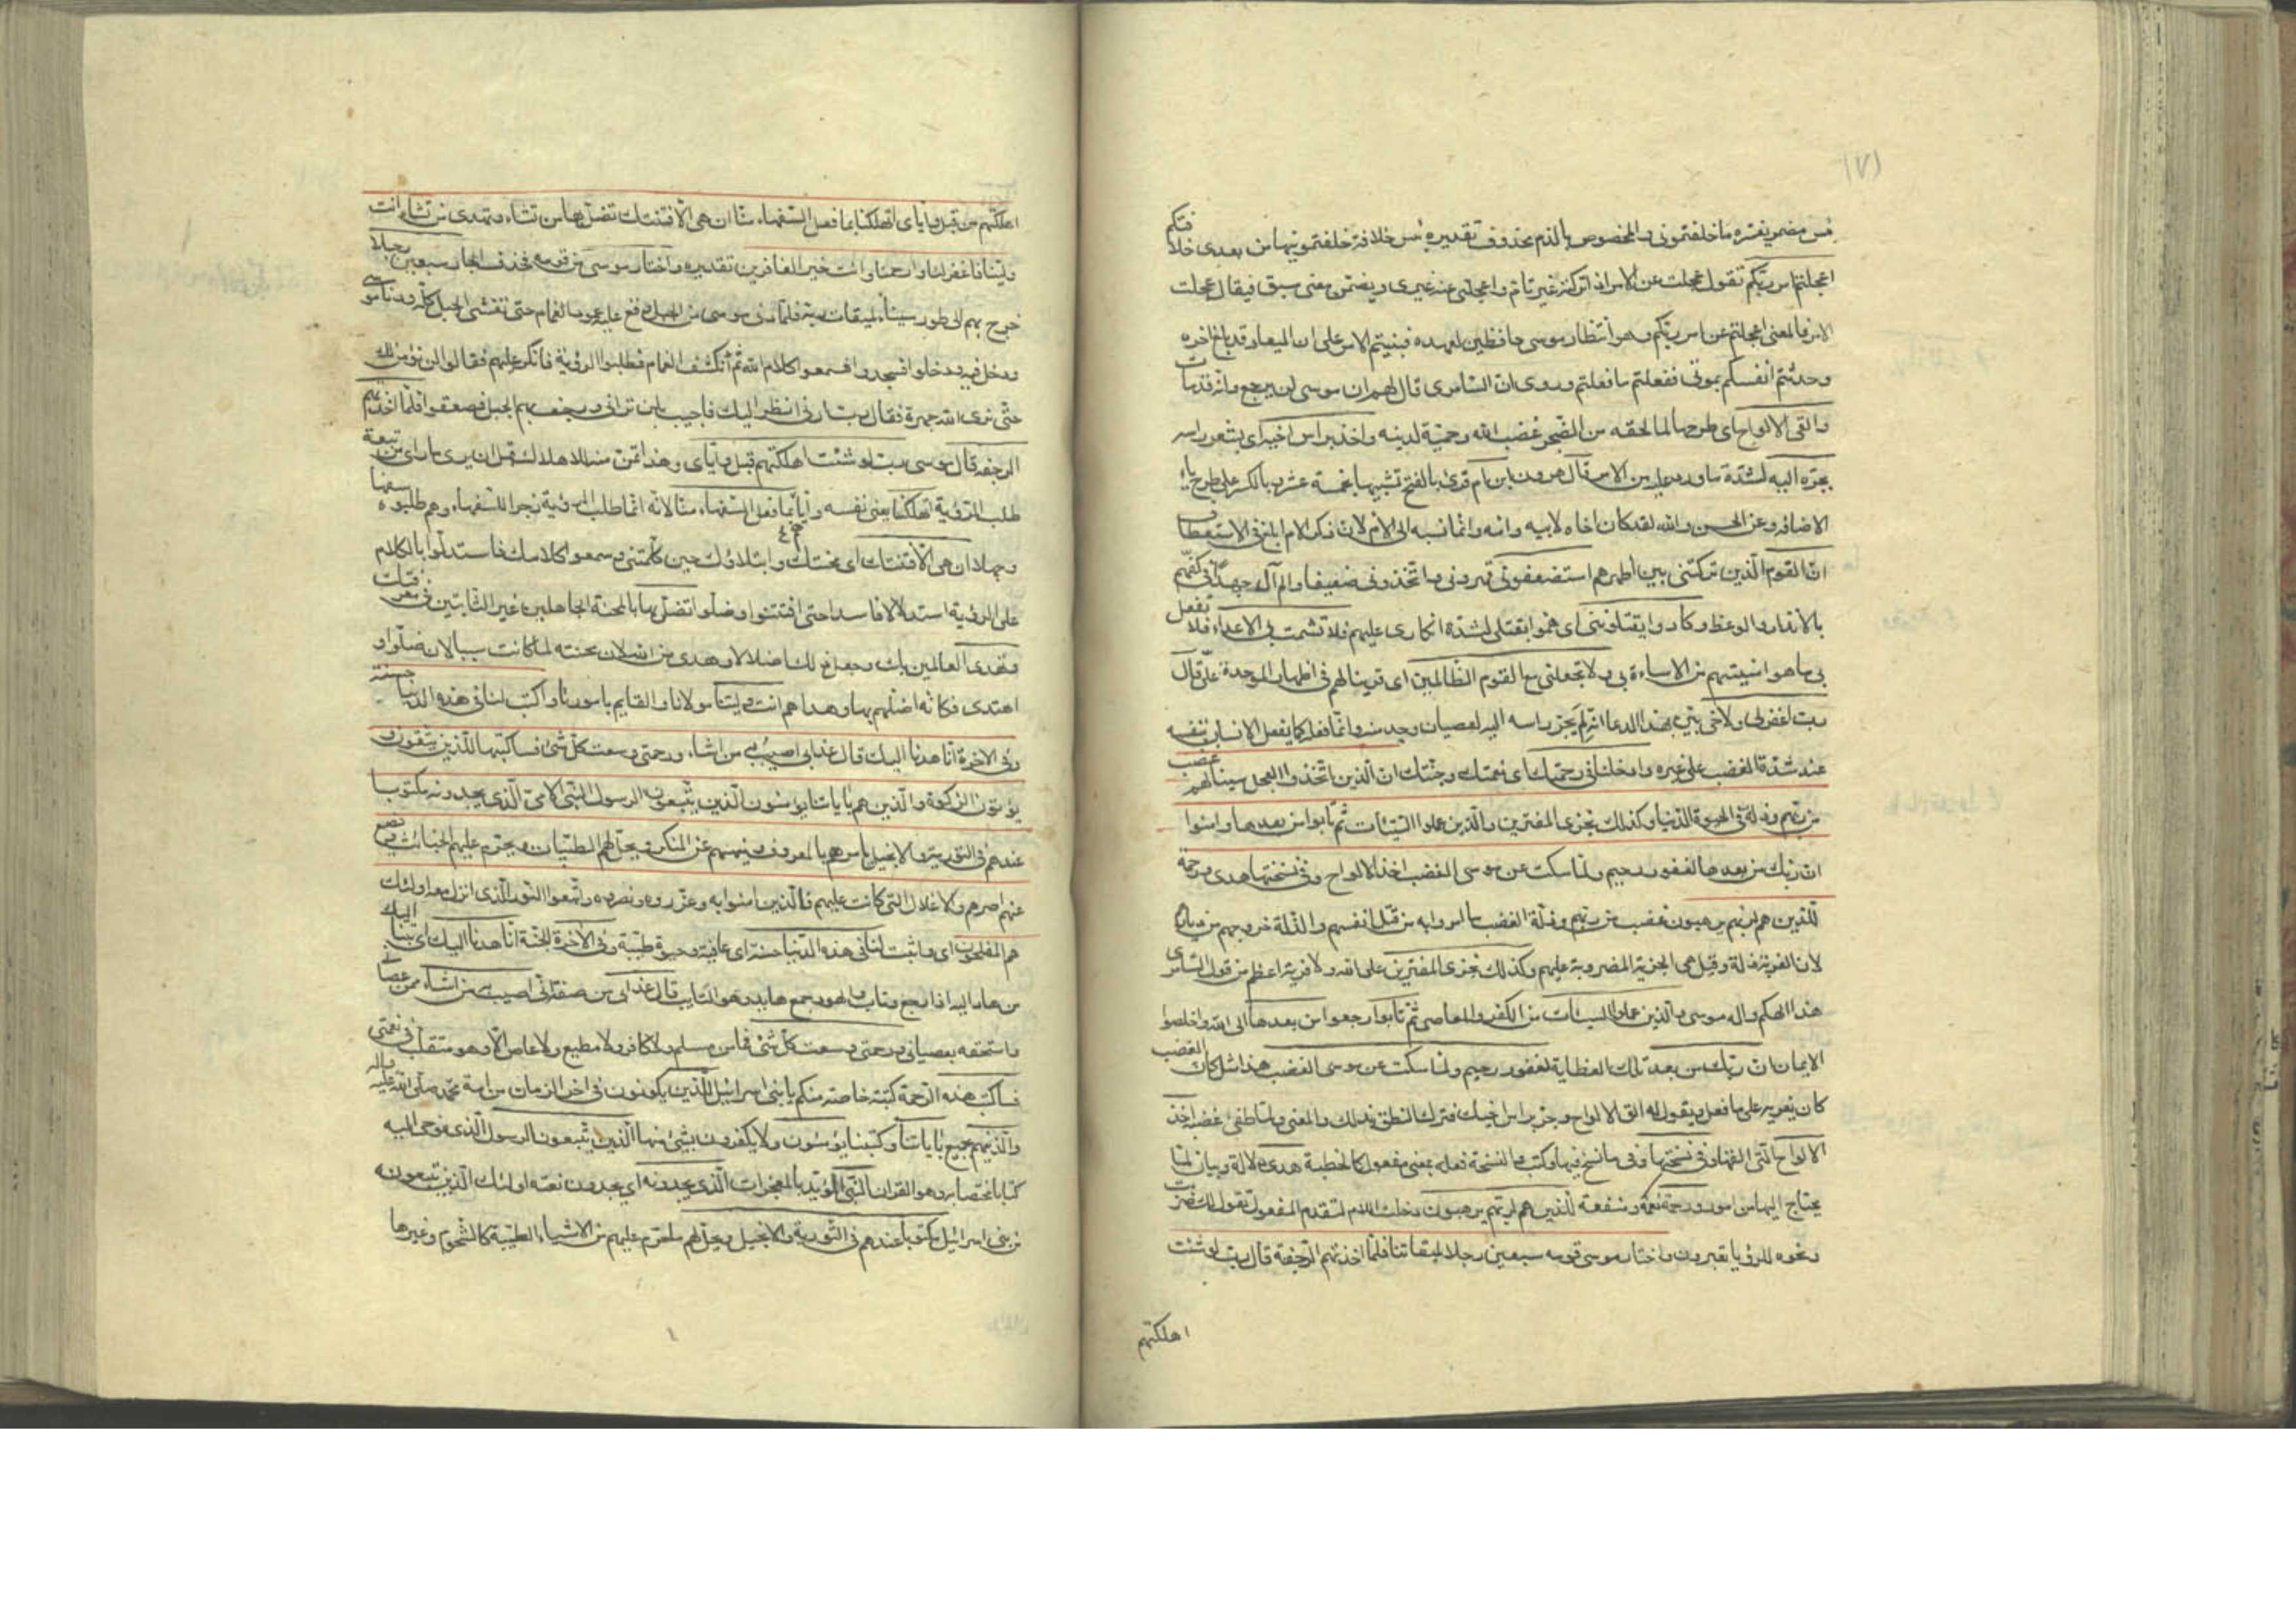 (٧١
بئس مضمر يفسره ما خلفتموني والمخصوص بالذم محذوف تقديره بئس خلافة خلفتمونيها من بعدى خلافتكم
اعجلتم امر ربكم تقول عجلت عن الامر اذا تركته غير تام واعجلنى عنه غيرى ويضمن معنى سبق فيقال عجلت
الامر فالمعنى اعجلتم عن امر ربكم وهو انتظار موسى حافظين لعهده فبنيتم الامر على ان الميعاد قد بلغ اخره
وحدثتم انفسكم بموتى ففعلتم ما فعلتم وروى ان السامرى قال لهم ان موسى لن يرجع وانه قد مات
والقى الالواح اى طرحها لما لحقه من الضجر غضب الله وحمية لدينه واخذ براس اخيه اى بشعر راسه
يجره اليه لشدة ما ورد عليه من الامر قال هرون ابن ام قرئ بالفتح تشبيها بخمسة عشر وبالكسر على طرح ياء
الاضافه وعن الحسن والله لقد كان اخاه لابيه وامه وانما نسبه الى الام لان ذكر الام ابلغ فى الاستعطاف
ان القوم الذين تركتنى بين اظهرهم استضعفونى قهرونى واتخذونى ضعيفا ولم آل جهدا فى كفهم
بالانذار والوعظ وكادوا يقتلوننى اى هموا بقتلى لشدة انكارى عليهم فلا تشمت بى الاعداء فلا تفعل
بى ما هو امنيتهم من الاساءة بى ولا تجعلنى مع القوم الظالمين اى قرينا لهم فى اظهار الموجدة على قال
رب اغفر لى ولاخى بين بهذا الدعا انه لم يجر راسه اليه لعصيان وجد منه وانما فعله كما يفعل الانسان بنفسه
عند شدة الغضب على غيره وادخلنا فى رحمتك اى نعمتك وجنتك ان الذين اتخذوا العجل سينالهم غضب
من ربهم وذلة فى الحيوة الدنيا وكذلك نجزى المفترين والذين عملوا السيئات ثم تابوا من بعدها وامنوا
ان ربك من بعدها لغفور رحيم ولما سكت عن موسى الغضب اخذ الالواح وفى نسختها هدى ورحمة
للذين هم لربهم يرهبون غضب من ربهم وذلة الغضب ما امروا به من قتل انفسهم والذلة خروجهم من ديارهم
لان الغربة ذلة وقيل هى الجزية المضروبة عليهم وكذلك نجزى المفترين على الله ولا فرية اعظم من قول السامرى
هذا الهكم واله موسى والذين عملوا السيئات من الكفر والمعاصى ثم تابوا رجعوا من بعدها الى الله واخلصوا
الايمان ان ربك من بعد تلك العظاية لغفور رحيم ولما سكت عن موسى الغضب هذا مثل كان الغضب
كان يغريه على ما فعل ويقول له الق الالواح وجر براس اخيك فترك النطق بذلك والمعنى ولما طفئ غضبه اخذ
الالواح التى القاها وفى نسختها وفى ما نسخ فيها وكتب والنسخة فعلة بمعنى مفعول كالخطبة هدى دلالة وبيان لما
يحتاج اليها من امور ورحمة نعمة ومنفعة للذين هم لربهم يرهبون دخلت اللام لتقدم المفعول تقول لك ضربت
ونحوه للرؤيا تعبرون واختار موسى قومه سبعين رجلا لميقاتنا فلما اخذتهم الرجفة قال رب لو شئت
اهلكتهم
اهلكتهم من قبل واياى اتهلكنا بما فعل السفهاء منا ان هى الا فتنتك تضل بها من تشاء وتهدى من تشاء انت
ولينا فاغفر لنا وارحمنا وانت خير الغافرين تقديره واختار موسى من قومه فحذف الجار سبعين رجلا
خرج بهم الى طور سيناء لميقات ربه فلما دنى موسى من الجبل وقع عليه عمود الغمام حتى تغشى الجبل كله ودنا موسى
ودخل فيه ودخلوا فسجدوا فسمعوا كلام الله ثم انكشف الغمام فطلبوا الرؤية فانكر عليهم فقالوا لن نؤمن لك
حتى نرى الله جهرة فقال رب ارنى انظر اليك فاجيب بلن ترانى ورجف بهم الجبل فصعقوا فلما اخذتهم
الرجفه قال موسى رب لو شئت اهلكتهم قبل واياى وهذا تمن منه للاهلاك قبل ان يرى ما راى من تبعة
طلب الرؤية اتهلكنا يعنى نفسه واياهم بما فعل السفهاء منا لانه انما طلب الرؤية زجرا للسفهاء وهم طلبوه سفها
وجهلا ان هى الا فتنتك اى محنتك وابتلاؤك حين كلمتنى وسمعوا كلامك فاستدلوا بالكلام
على الرؤية استدلالا فاسدا حتى افتتنوا وضلوا تضل بها بالمحنة الجاهلين غير الثابتين فى معرفتك
وتهدى العالمين بك وجعل ذلك اضلالا وهدى من الله لان محنته لما كانت سببا لان ضلوا و
اهتدى فكانه اضلهم بها وهداهم انت ولينا مولانا والقايم بامورنا واكتب لنا فى هذه الدنيا حسنة
وفى الاخرة انا هدنا اليك قال عذابى اصيب به من اشاء ورحمتى وسعت كل شئ فساكتبها للذين يتقون و
يؤتون الزكوة والذين هم باياتنا يؤمنون الذين يتبعون الرسول النبى الامى الذى يجدونه مكتوبا
عندهم فى التورية والانجيل يامرهم بالمعروف وينهيهم عن المنكر ويحل لهم الطيبات ويحرم عليهم الخبائث ويضع
عنهم اصرهم والاغلال التى كانت عليهم فالذين امنوا به وعزروه ونصروه واتبعوا النور الذى انزل معه اولئك
هم المفلحون اى واثبت لنا فى هذه الدنيا حسنة اى عافية وحيوة طيبة وفى الاخرة الجنة انا هدنا اليك اى تبنا اليك
من هاد اليه اذا رجع وتاب والهود جمع هايد وهو التايب قال عذابى من صفته انى اصيب به من اشاء ممن عصانى
واستحقه بعصيانى ورحمتى وسعت كل شئ فما من مسلم ولا كافر ولا مطيع ولا عاص الا وهو متقلب فى نعمتى
فساكتب هذه الرحمة كتبة خاصة منكم يا بنى اسرائيل للذين يكونون فى اخر الزمان من امة محمد صلى الله عليه واله
والذين هم بجميع باياتنا وكتبنا يؤمنون ولا يكفرون بشئ منها الذين يتبعون الرسول الذى نوحى اليه
كتابا مختصا به وهو القران النبى المؤيد بالمعجزات الذى يجدونه اى يجدون نعته اولئك الذين يتبعونه
من بنى اسرائيل مكتوبا عندهم فى التورية والانجيل ويحل لهم ما حرم عليهم من الاشياء الطيبة كالشحوم وغيرها